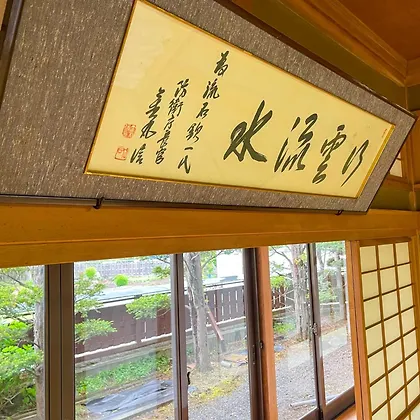 行雲流水
為 流石 一氏
防衛庁長官
金丸信